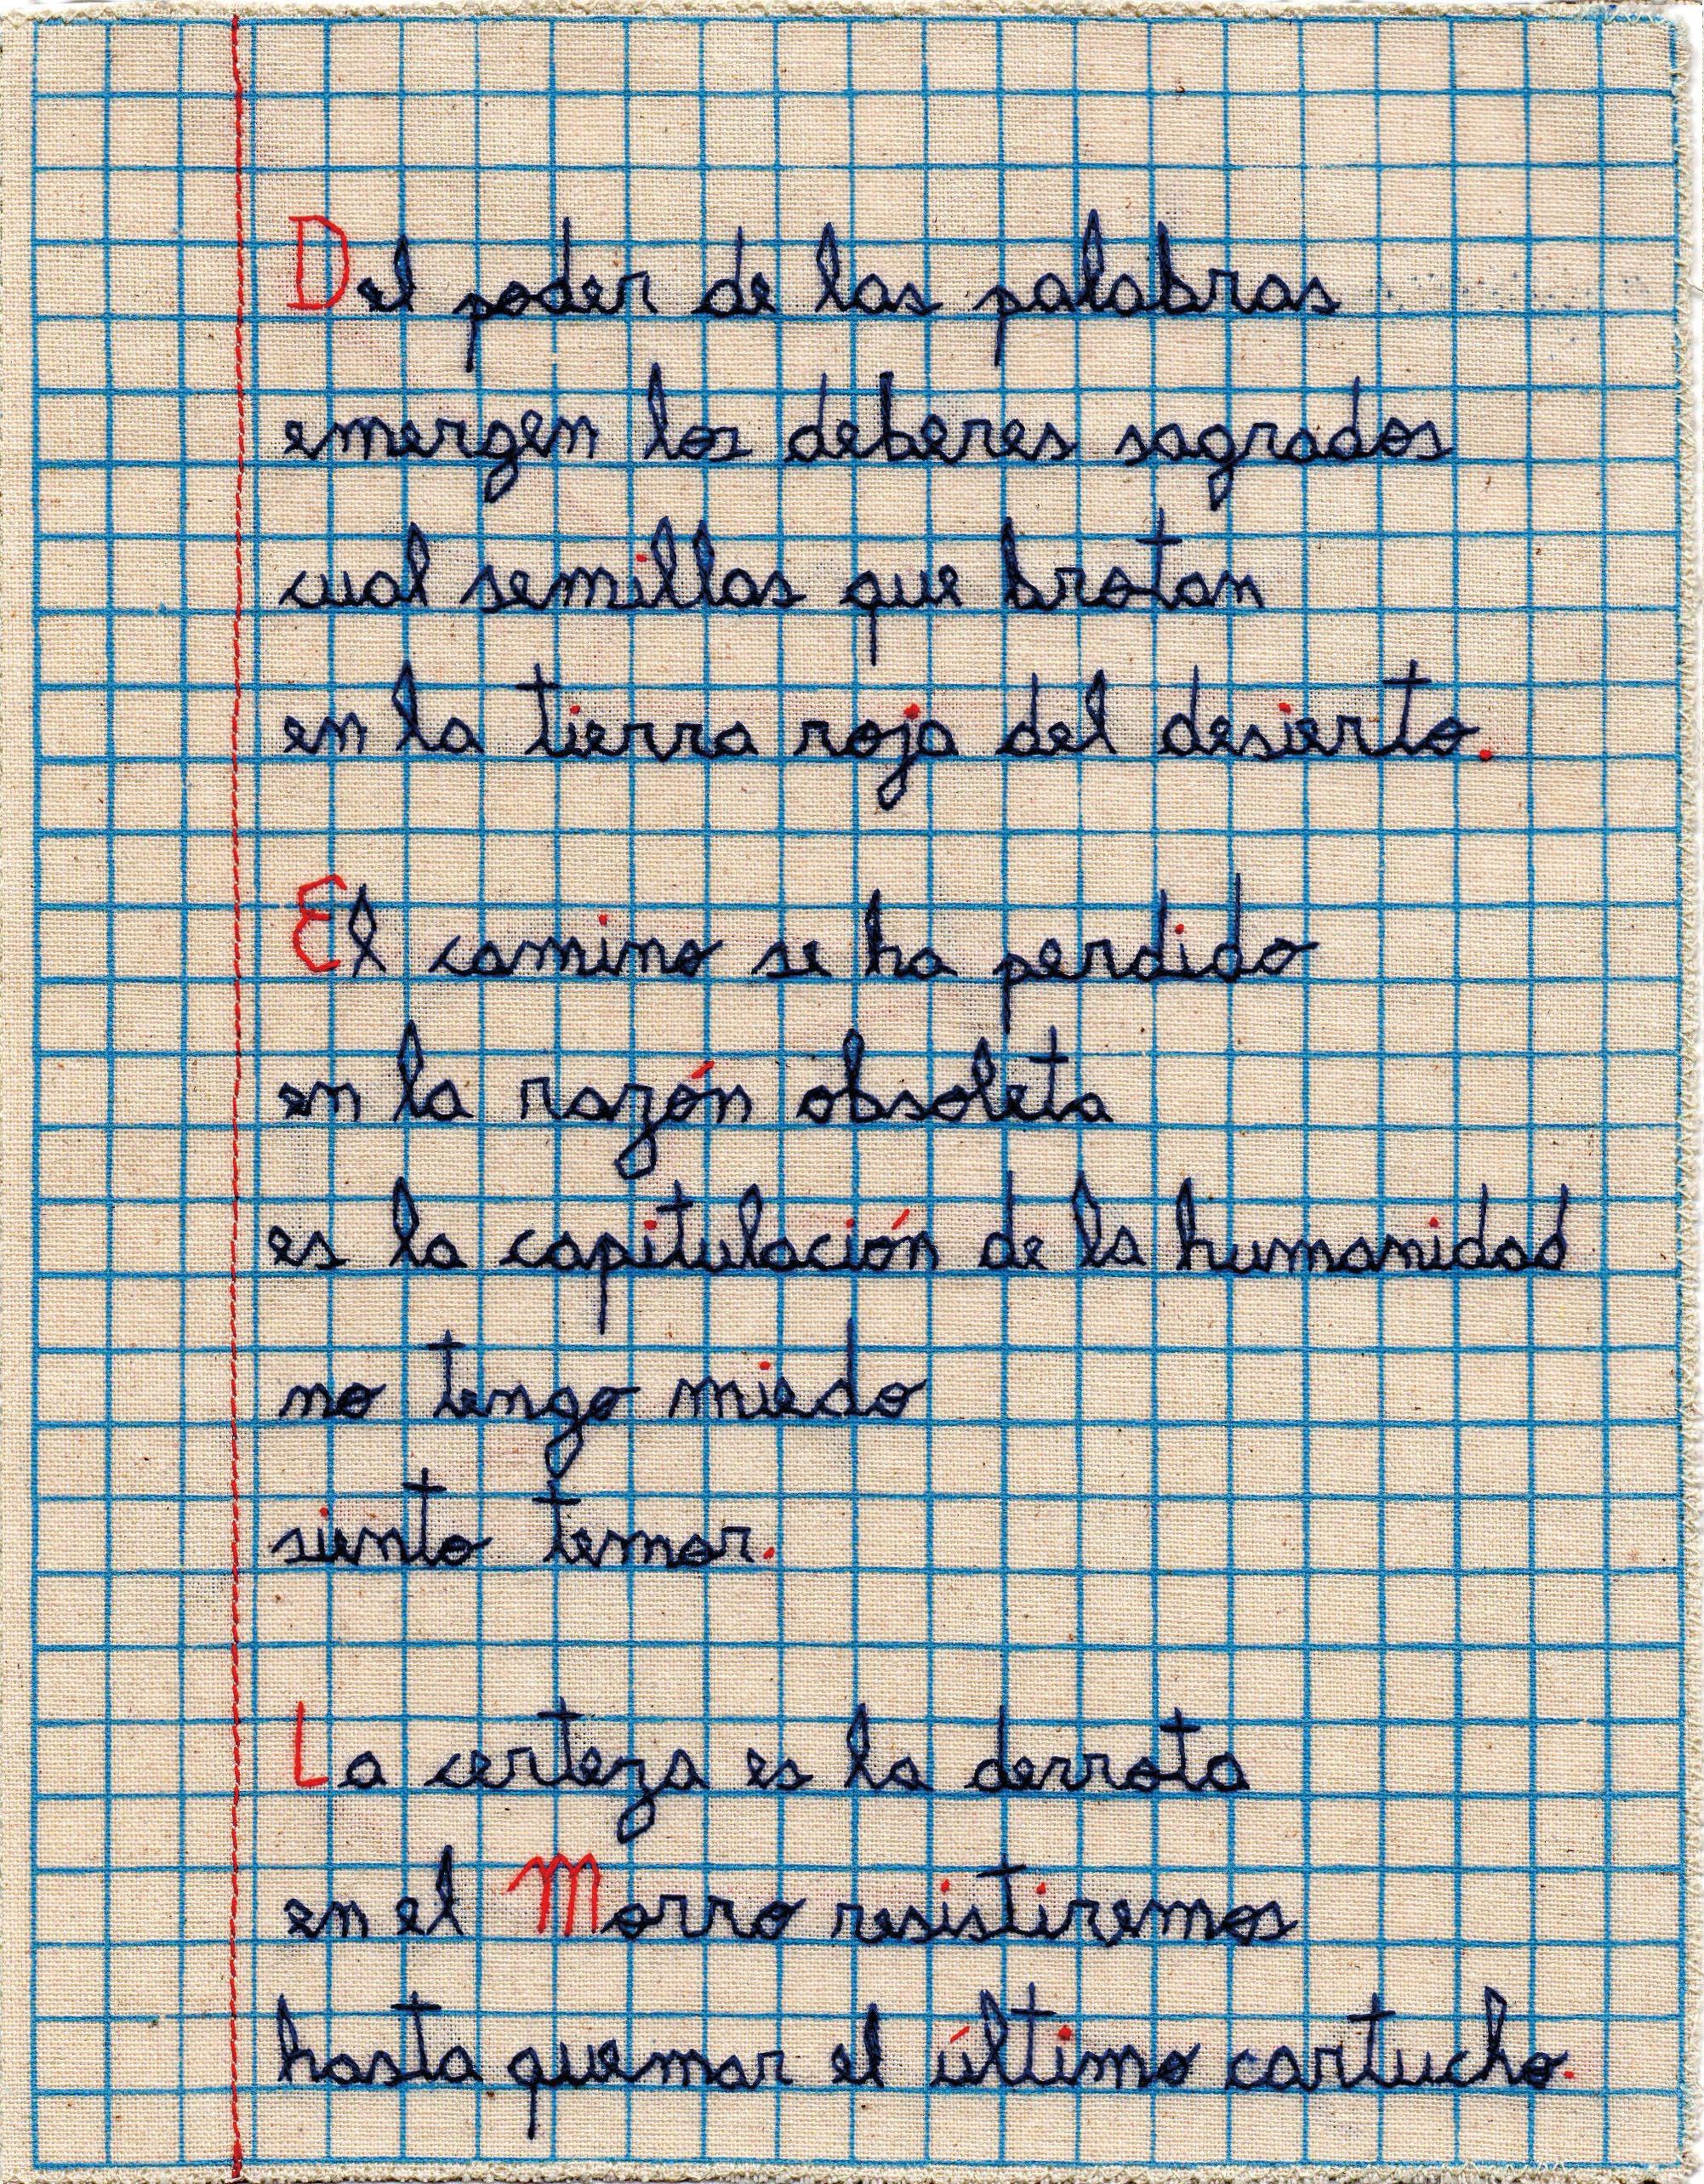 Del poder de las palabras
emergen los deberes sagrados
cual semillas que brotan
en la tierra roja del desierto.
El camino se ha perdido
en la razón obsoleta
es la capitulación de la humanidad
no tengo miedo
siento temor.
La certeza es la derrota
en el Morro resistiremos
hasta quemar el último cartucho.